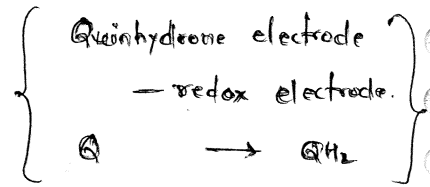 Quinhydrone electrode
— redox electrode.
Q → QH₂